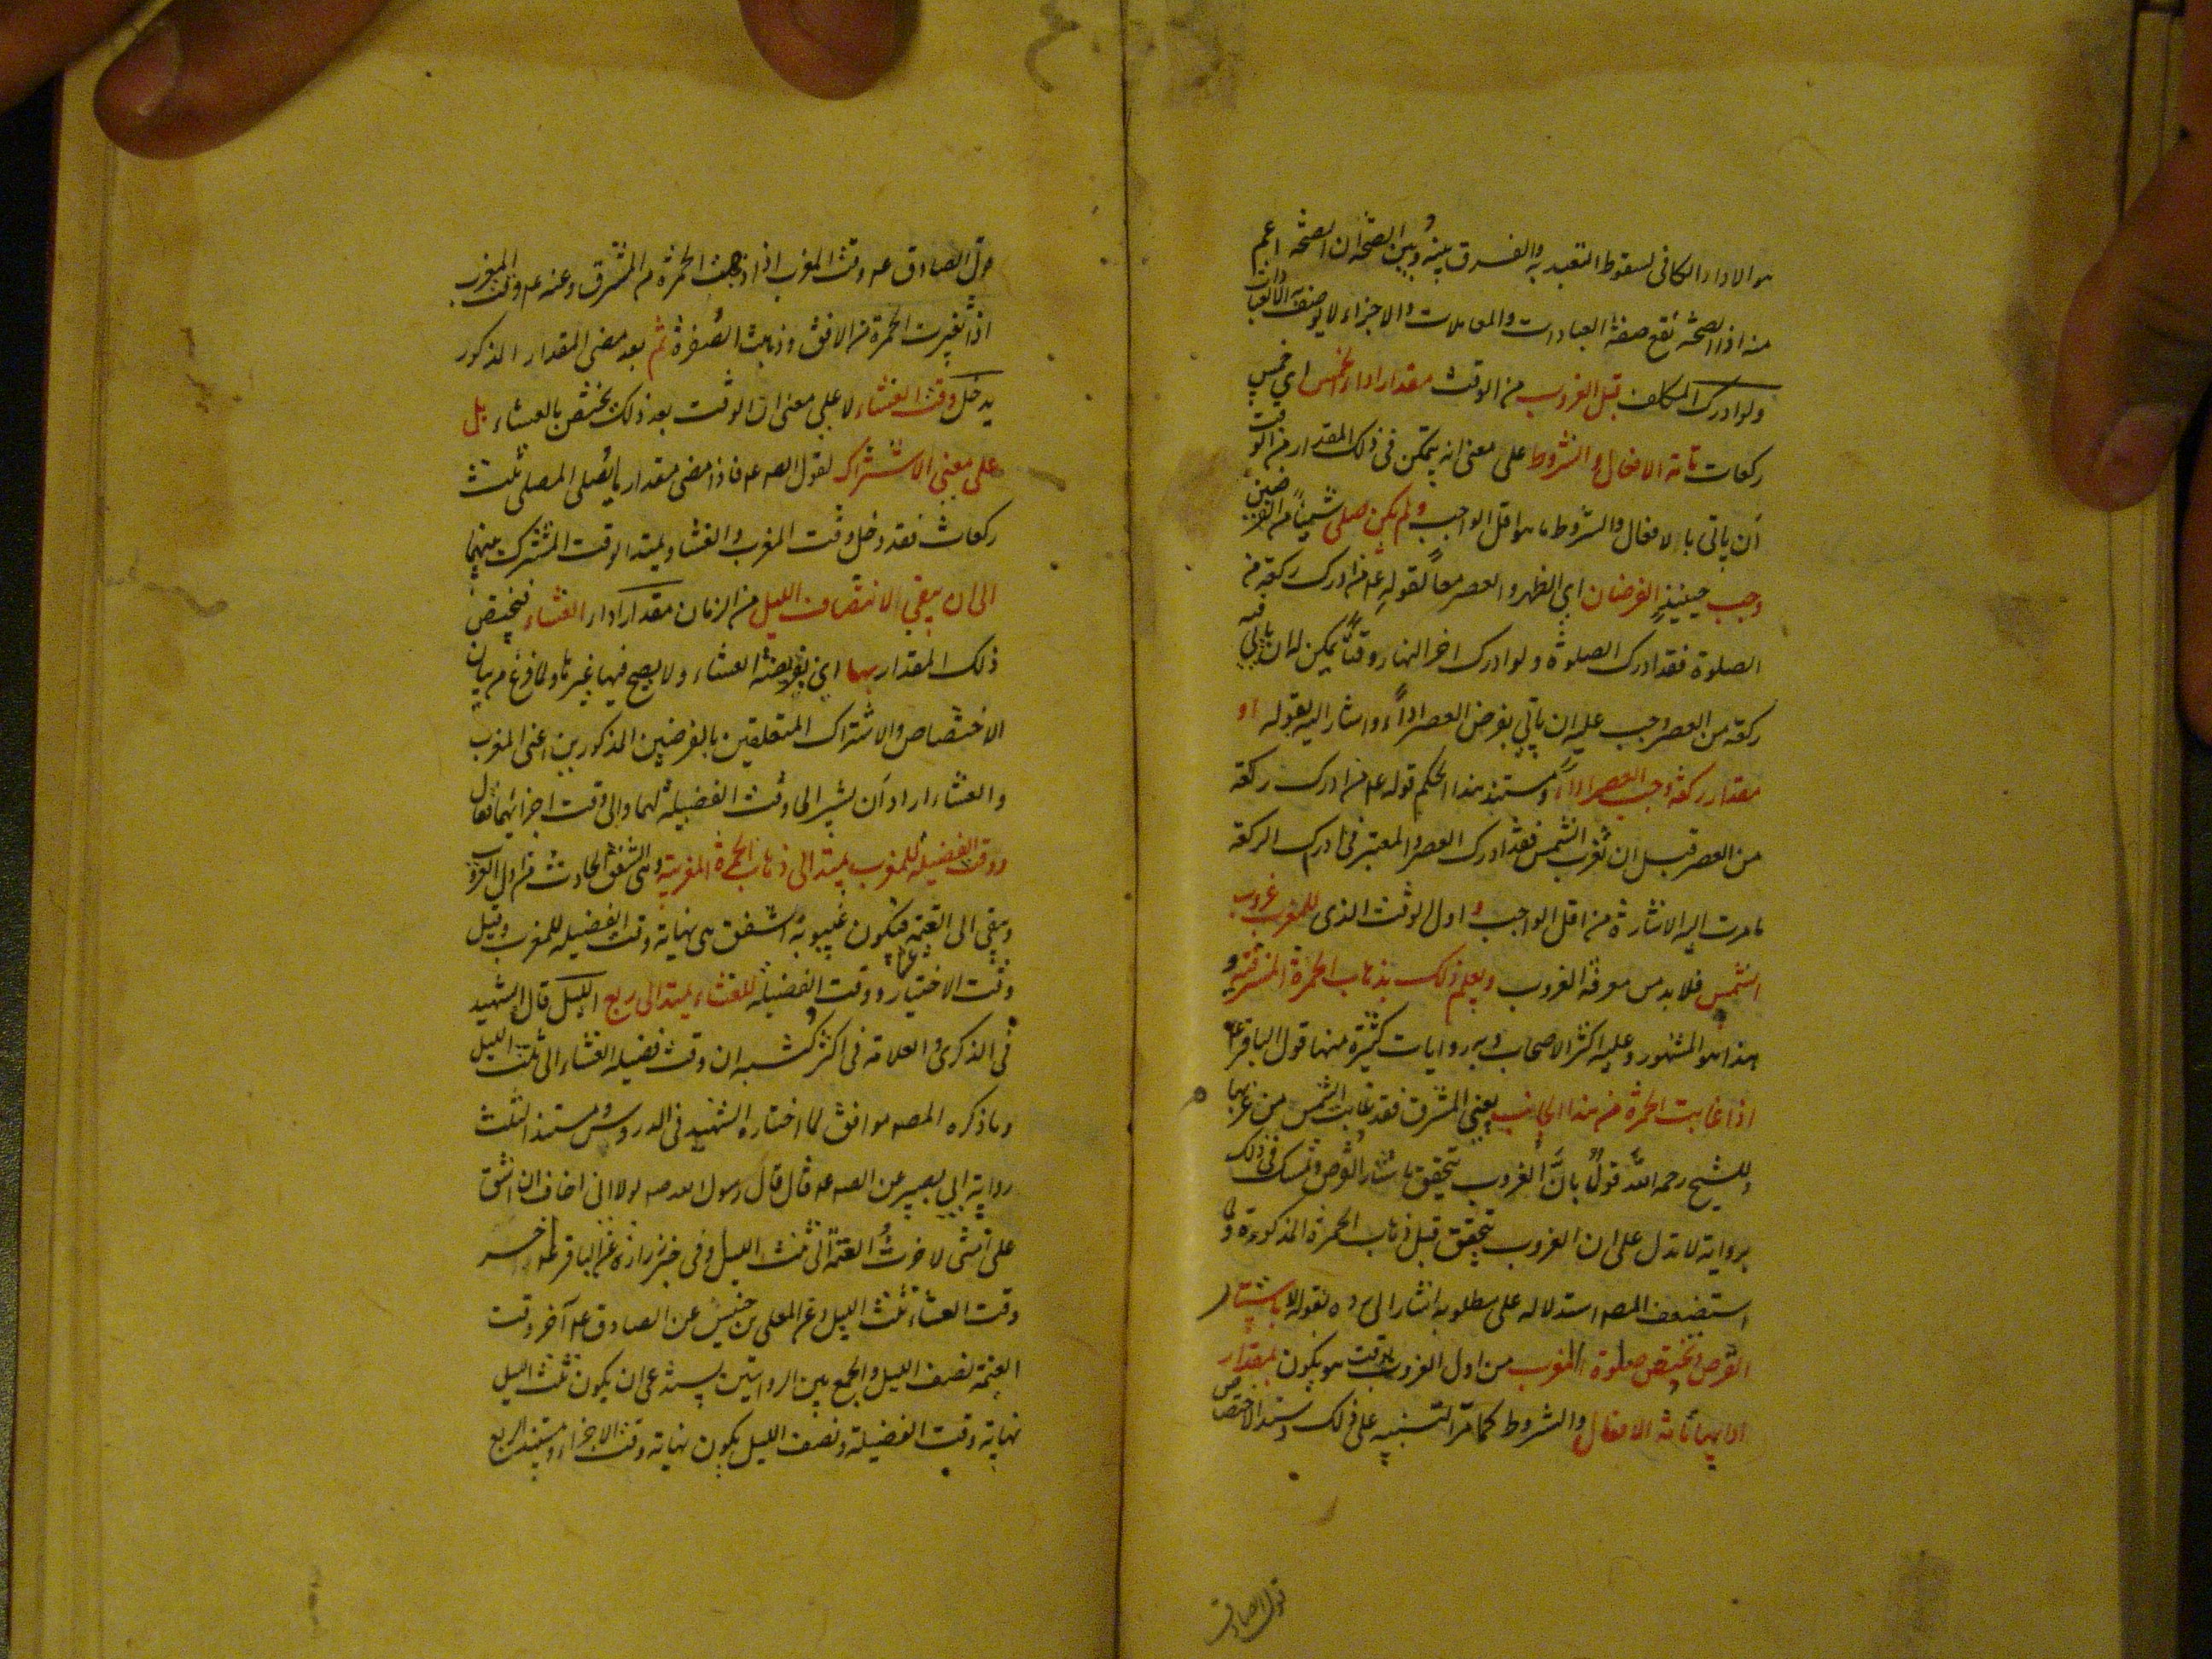 هو الاداء الكافى لسقوط التعبد به والفرق بينه وبين الصحة ان الصحة اعم
منه اذ الصحة تقع صفة العبادات والمعاملات والاجزاء لا يوصف به الا العبادات
ولو ادرك المكلف قبل الغروب من الوقت مقدار اداء الخمس اى خمس
ركعات تامة الافعال والشروط على معنى انه يتمكن فى ذلك المقدار من الوقت
أن ياتى بالافعال والشروط ما هو اقل الواجب ولم يكن صلى شيئاً من الفرضين
وجب حينئذٍ الفرضان اى الظهر والعصر معاً لقوله عم من ادرك ركعة من
الصلوة فقد ادرك الصلوة ولو ادرك اخر النهار وقتاً يمكن له ان ياتى فيه
ركعة من العصر وجب عليه ان ياتى بفرض العصر اداءً واشار اليه بقوله او
مقدار ركعة وجب العصر اداءً ومستند هذا الحكم قوله عم من ادرك ركعة
من العصر قبل ان تغرب الشمس فقد ادرك العصر والمعتبر فى ادرك الركعة
ما مرت اليه الاشارة من اقل الواجب و اول الوقت الذى للمغرب غروب
الشمس فلابد من معرفة الغروب ويعلم ذلك بذهاب الحمرة المشرقية و
هذا هو المشهور وعليه اكثر الاصحاب وبه روايات كثيرة منها قول الباقر عم
اذا غابت الحمرة من هذا الجانب يعنى المشرق فقد غابت الشمس من غربها
وللشيخ رحمه الله قولٌ بانّ الغروب يتحقق باستتار القرص وتمسك فى ذلك
برواية لا تدل على ان الغروب يتحقق قبل ذهاب الحمرة المذكورة ولما
استضعف المصـ استدلاله على مطلوبه اشار الى رده بقوله لا باستتار
القرص وتختص صلوة المغرب من اول الغروب بوقت هو يكون بمقدار
ادائها تامة الافعال والشروط كما مر التنبيه على ذلك وسند الاختصاص
قول الصادق
قول الصادق عم وقت المغرب اذا ذهبت الحمرة من المشرق وعنه عم وقت المغرب
اذا تغيرت الحمرة من الافق وذهبت الصفرة ثم بعد مضى المقدار المذكور
يدخل وقت العشاء لا على معنى ان الوقت بعد ذلك يختص بالعشاء بل
على معنى الاشتراك لقول الصـ عم فاذا مضى مقدار ما يصلى المصلى ثلث
ركعات فقد دخل وقت المغرب والعشاء ويمتد الوقت المشترك بينهما
الى ان يبقى لانتصاف الليل من الزمان مقدار اداء العشاء فيختص
ذلك المقدار بها اى بفريضة العشاء ولا يصح فيها غيرها ولما فرغ من بيان
الاختصاص والاشتراك المتعلقين بالفرضين المذكورين اعنى المغرب
والعشاء اراد أن يشير الى وقت الفضيلة لهما والى وقت اجزائهما فقال
ووقت الفضيلة للمغرب يمتد الى ذهاب الحمرة المغربية وهى الشفق الحادث من اول الغروب
ويبقى الى العتمة فتكون غيبوبة الشفق هى نهاية وقت الفضيلة للمغرب وقيل
وقت الاختيار ووقت الفضيلة للعشاء يمتد الى ربع الليل قال الشهيد
فى الذكرى والعلامة فى اكثر كتبه ان وقت فضيلة العشاء الى ثلث الليل
وما ذكره المصـ موافق لما اختاره الشهيد فى الدروس ومستند الثلث
رواية ابى بصير عن الصـ عم قال قال رسول الله صـ لولا انى اخاف ان اشق
على امتى لاخرت العتمة الى ثلث الليل وفى خبر زرارة عن الباقر عم اخر
وقت العشاء ثلث الليل وعن المعلى بن خنيس عن الصادق عم آخر وقت
العتمة نصف الليل والجمع بين الروايتين يستدعى ان يكون ثلث الليل
نهاية وقت الفضيلة ونصف الليل يكون نهاية وقت الاجزاء ومستند الربع